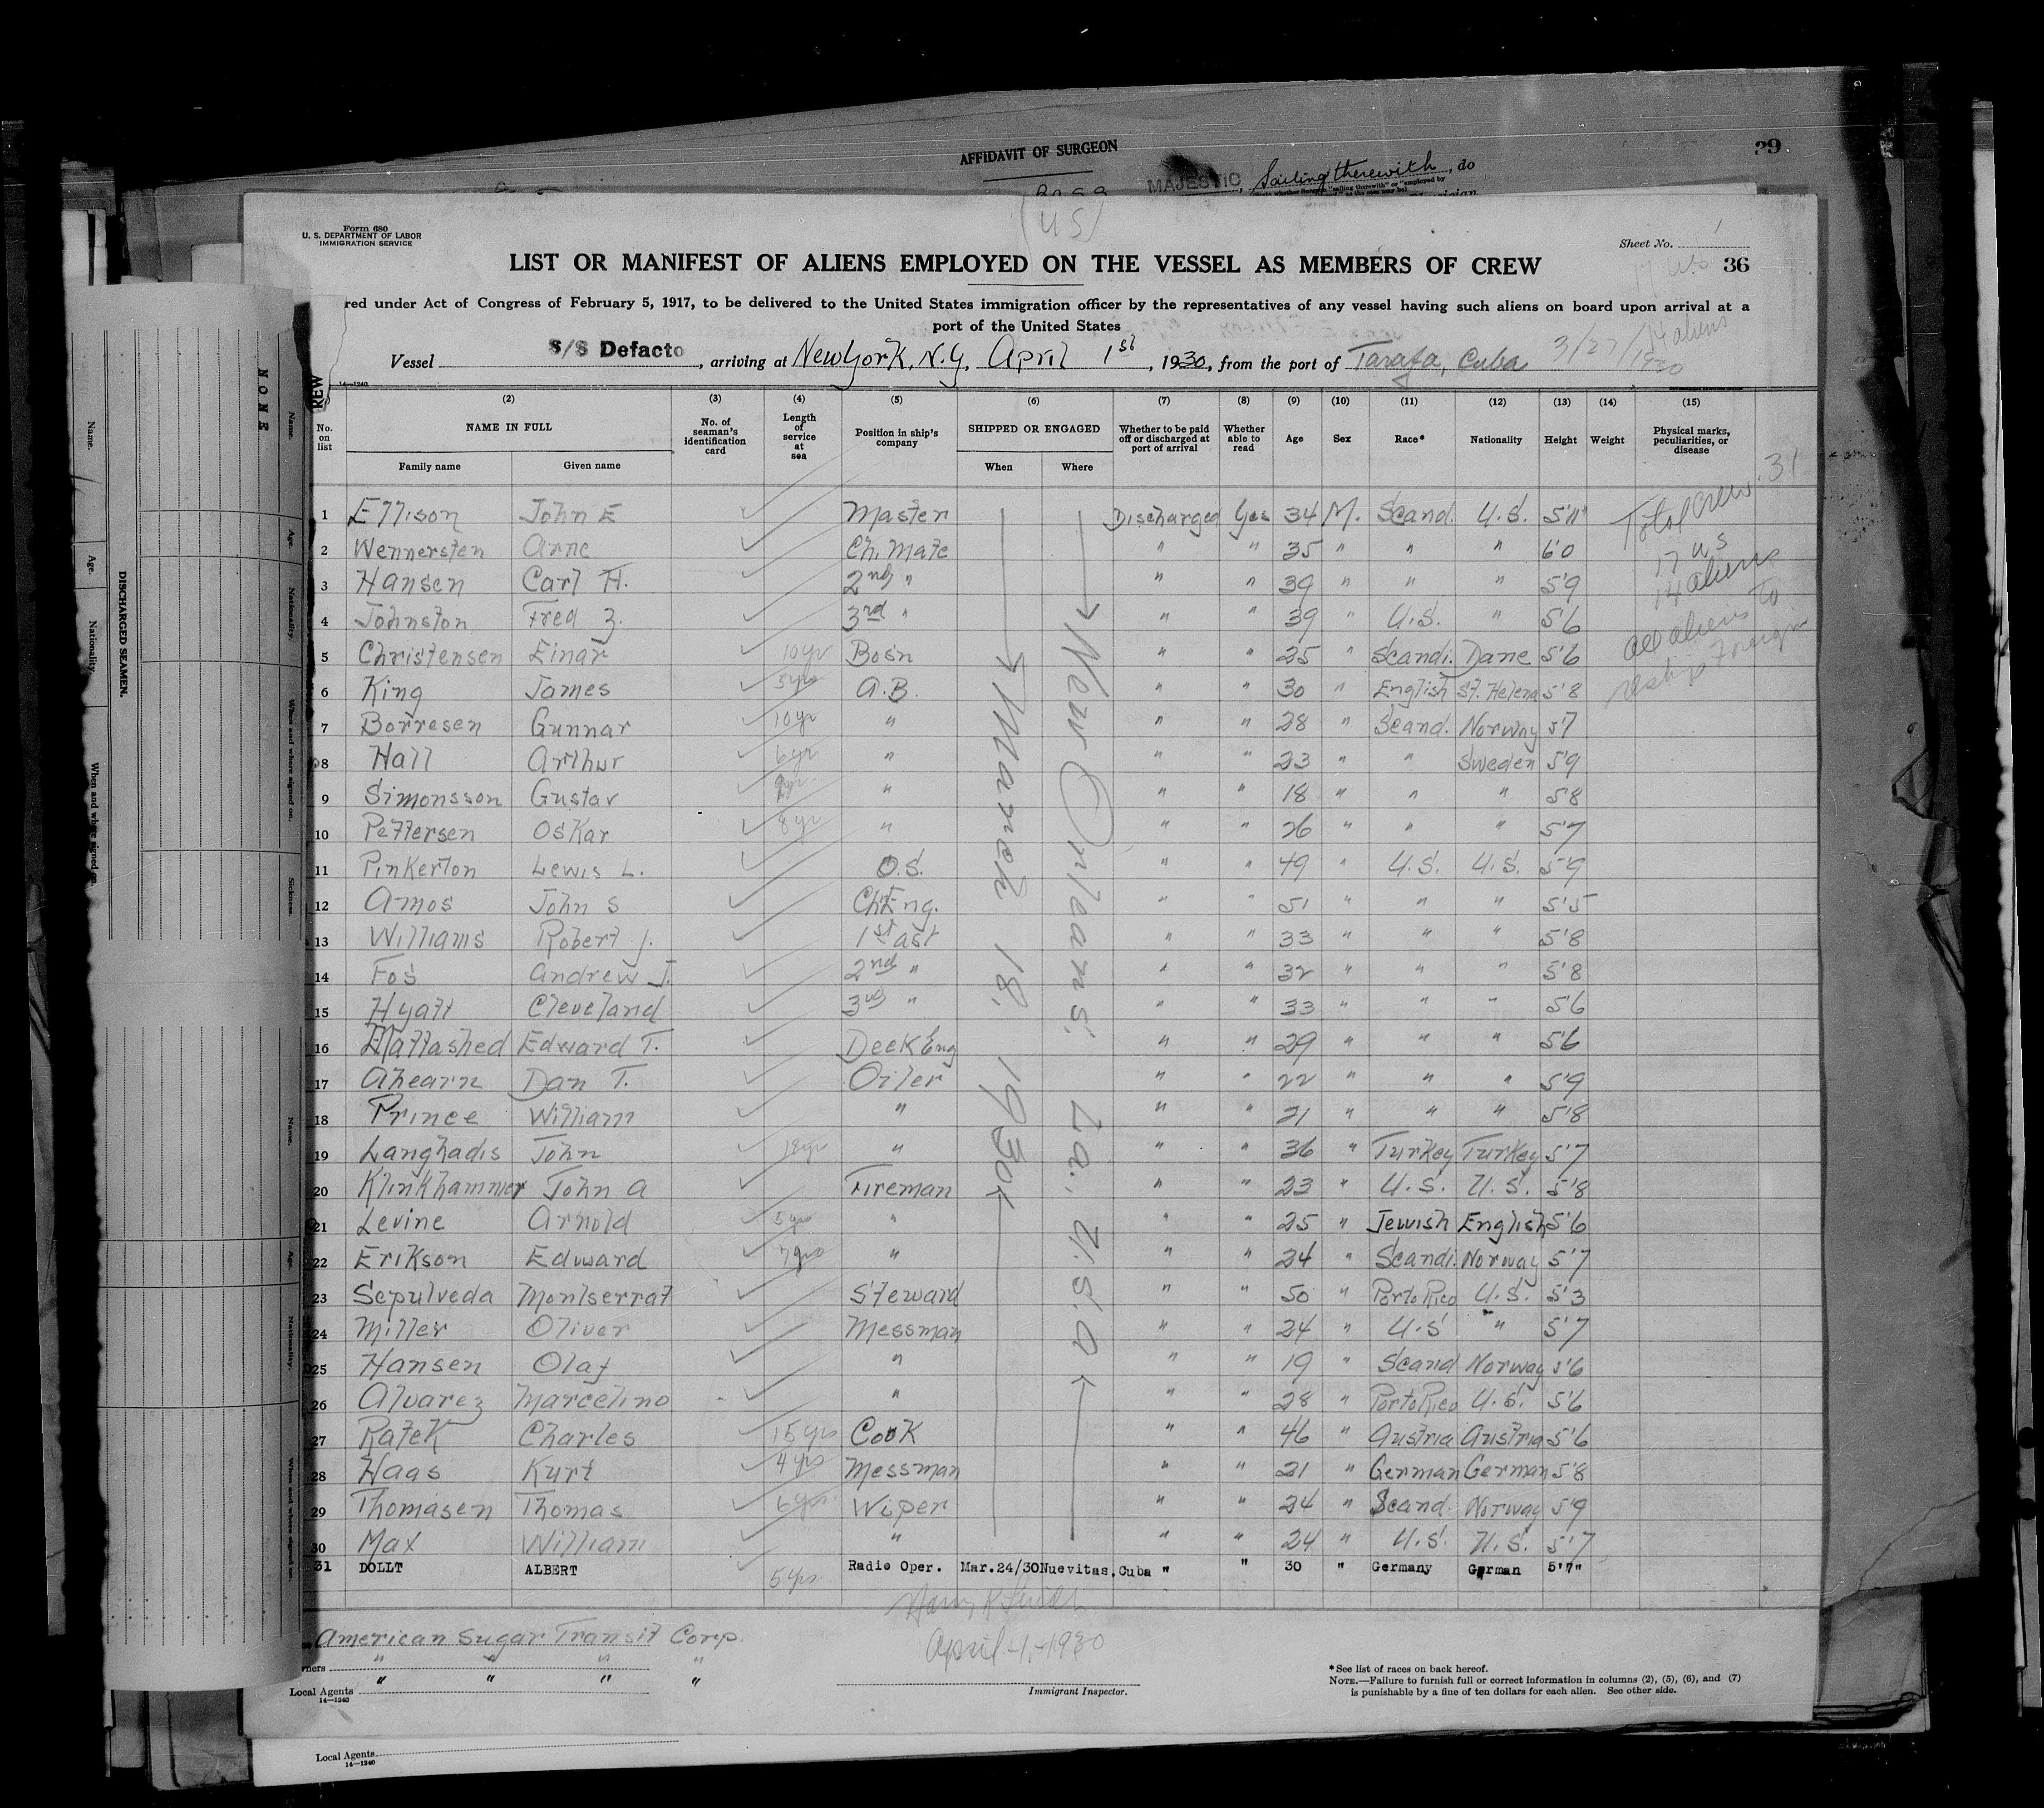 AFFIDAVIT OF SURGEON
39
MAJESTIC, Sailing therewith, do
(US)
Form 680
U. S. DEPARTMENT OF LABOR
IMMIGRATION SERVICE
Sheet No. 1
LIST OR MANIFEST OF ALIENS EMPLOYED ON THE VESSEL AS MEMBERS OF CREW
36
red under Act of Congress of February 5, 1917, to be delivered to the United States immigration officer by the representatives of any vessel having such aliens on board upon arrival at a
port of the United States
14 aliens
Vessel S/S Defacto, arriving at New York, N.Y, April 1st, 1930, from the port of Tarafa, Cuba 3/27/1930
14—1240
(2) (3) (4) (5) (6) (7) (8) (9) (10) (11) (12) (13) (14) (15)
No. on list NAME IN FULL No. of seaman's identification card Length of service at sea Position in ship's company SHIPPED OR ENGAGED Whether to be paid off or discharged at port of arrival Whether able to read Age Sex Race* Nationality Height Weight Physical marks, peculiarities, or disease
Family name Given name When Where
1 Ellison John E Master Discharged Yes 34 M. Scand. U.S. 5'11"
2 Wennersten Arne Ch. Mate " " 35 " " " 6'0
3 Hansen Carl H. 2nd " " " 39 " " " 5'9
4 Johnston Fred Z. 3rd " " " 39 " U.S. " 5'6
5 Christensen Einar 10yr Bos'n " " 25 " Scandi. Dane 5'6
6 King James 5yrs A.B. " " 30 " English St. Helena 5'8
7 Borresen Gunnar 10yr " " " 28 " Scand. Norway 5'7
8 Hall Arthur 6yr " " " 23 " " Sweden 5'9
9 Simonsson Gustav " " " 18 " " " 5'8
10 Pettersen Oskar 8yr " " " 26 " " " 5'7
11 Pinkerton Lewis L. O.S. " " 49 " U.S. U.S. 5'9
12 Amos John S Ch. Eng. " " 51 " " " 5'5
13 Williams Robert J. 1st Ast " " 33 " " " 5'8
14 Fos Andrew J. 2nd " " " 32 " " " 5'8
15 Hyatt Cleveland 3rd " " " 33 " " " 5'6
16 Mattashed Edward T. Deck Eng " " 29 " " " 5'6
17 Ahearn Dan T. Oiler " " 22 " " " 5'9
18 Prince William " " " 21 " " " 5'8
19 Langhadis John 18yr " " " 36 " Turkey Turkey 5'7
20 Klinkhammer John A Fireman " " 23 " U.S. U.S. 5'8
21 Levine Arnold 5yrs " " " 25 " Jewish English 5'6
22 Erikson Edward 7yrs " " " 24 " Scandi. Norway 5'7
23 Sepulveda Montserrat Steward " " 50 " Porto Rico U.S. 5'3
24 Miller Oliver Messman " " 24 " U.S " 5'7
25 Hansen Olaf " " " 19 " Scand Norway 5'6
26 Alvarez Marcelino " " " 28 " Porto Rico U.S. 5'6
27 Ratek Charles 15yrs Cook " " 46 " Austria Austria 5'6
28 Haas Kurt 4yrs Messman " " 21 " German German 5'8
29 Thomasen Thomas 6yr Wiper " " 24 " Scand. Norway 5'9
30 Max William " " " 24 " U.S. U.S. 5'7
31 DOLLT ALBERT 5yrs Radio Oper. Mar.24/30 Nuevitas,Cuba " " 30 " Germany German 5'7"
March 18, 1930
New Orleans, La., U.S.A
Total Crew. 31
17 US
14 aliens
all aliens to
reship foreign
American Sugar Transit Corp.
April-1-1930
Owners " " " "
Local Agents " " " "
14—1240
Immigrant Inspector.
*See list of races on back hereof.
NOTE.—Failure to furnish full or correct information in columns (2), (5), (6), and (7)
is punishable by a fine of ten dollars for each alien. See other side.
Local Agents
14—1240
NONE
DISCHARGED SEAMEN.
Name. Age. Nationality. When and where signed on.
Name. Age. Nationality. When and where signed on. Sickness.
Name. Age. Nationality. When and where signed on.